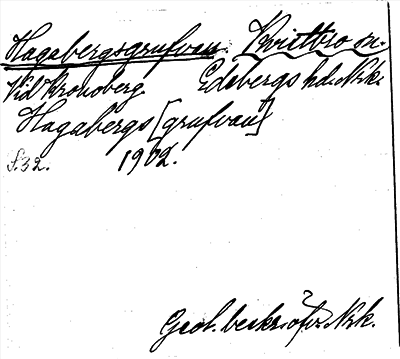 Hagabergsgrufvan. Kvistbro sn.
Vid Kronoberg. Edsbergs hd. Nrk.
Hagabergs [grufvan]
s. 32. 1902.
Geol. beskr. öfv. Nrk.